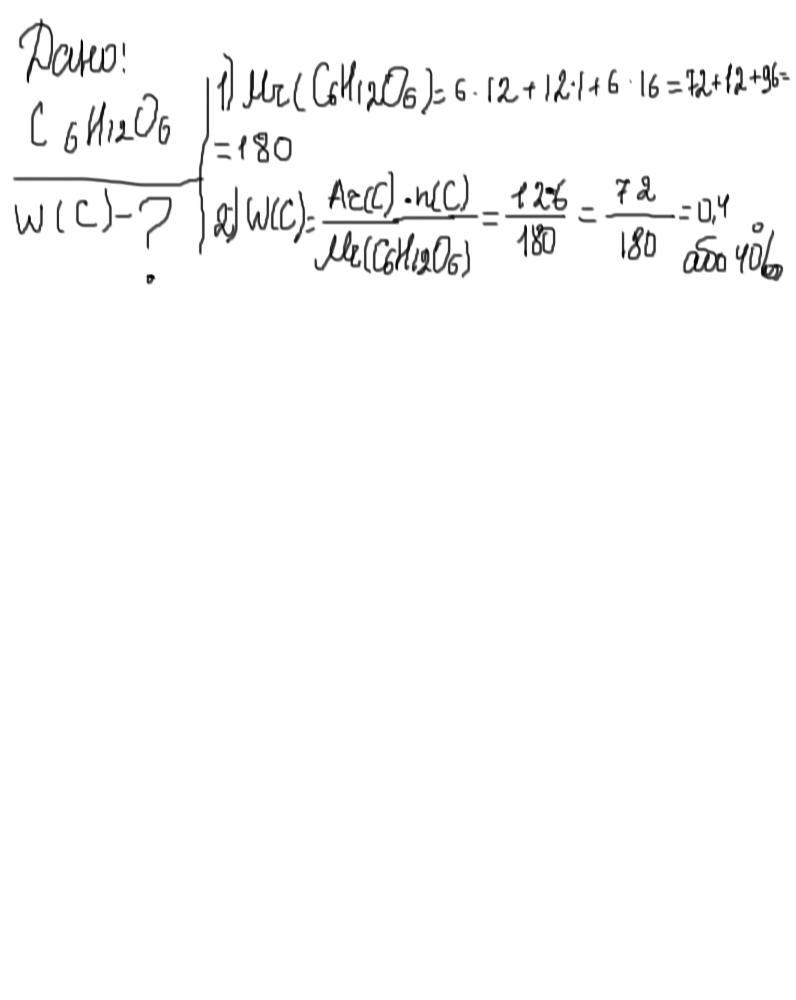 Дано:
C6H12O6
W(C)-?
1) Mr(C6H12O6)=6·12+12·1+6·16=72+12+96=
=180
2) W(C)=Ar(C)·n(C)/Mr(C6H12O6)=12·6/180=72/180=0,4
або 40%